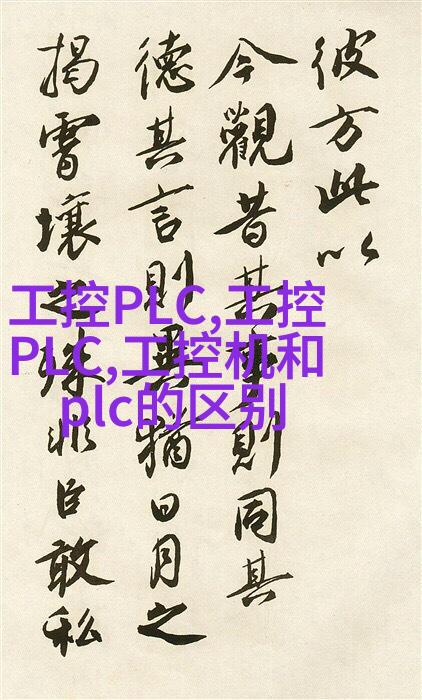 彼方此以
今觀昔其事則同其
德其言則異猶日月之
揭霄壤之殊非臣敢私
工控PLC,工控
PLC,工控机和
plc的区别